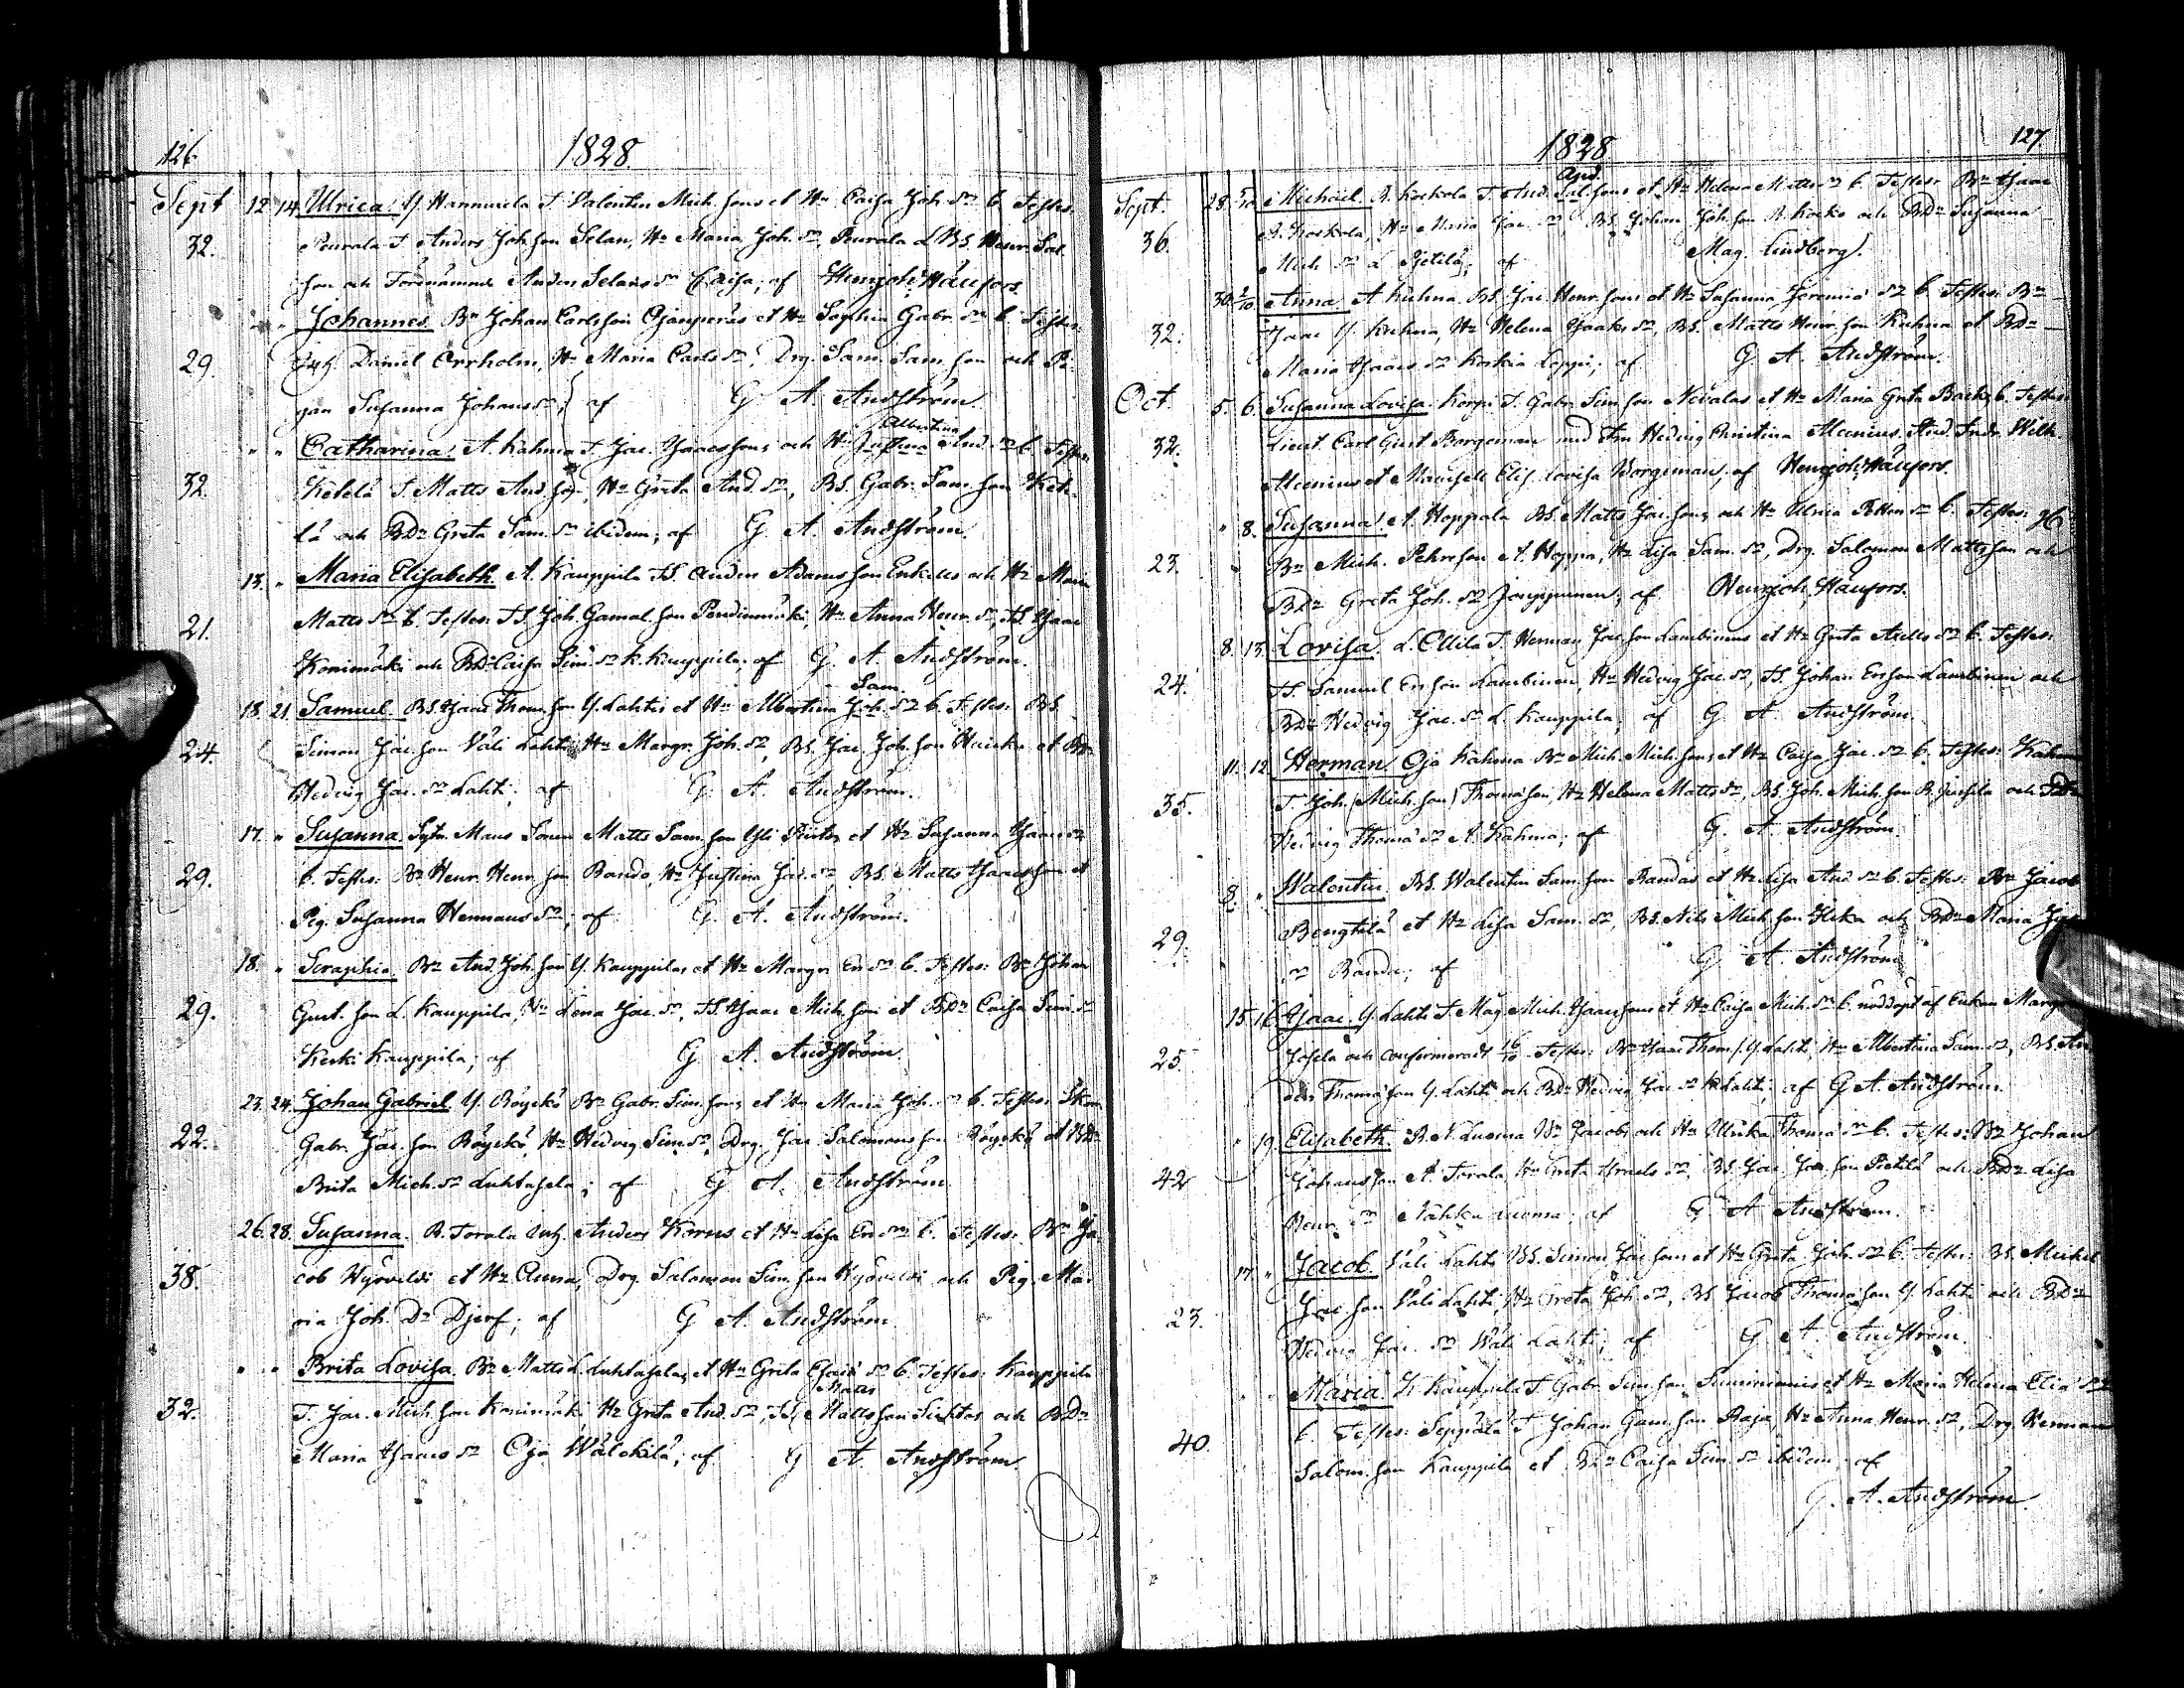 126 1828
Sept 12. 14. Ulrica. Y. Hannuxela T. Valentin Mich. sons et Hu Caisa Joh. dr b. Testes:
32. Pourala T. Anders Joh. son Selan, Hu Maria Joh. dr, Pourala L BS. Henr. Sal.
son och Anders Selans dr Caisa, af Henr Joh. Håufors.
" " Johannes. Bn Johan Carlsson Ojanperäs et Hu Sophia Gabr. dr b. Testes:
29. Inh. Daniel Orrholm, Hu Maria Carls dr, Drg. Sam. Sam. son och Pi-
gan Susanna Johans dr; af G. A. Andström.
Albertina
" " Catharina. A. Kahma T. Jac. Isacssons och Hu Justina And. dr b. Testes:
32. Ketelä T. Matts And. son, Hu Greta And. dr, BS. Gabr. Sam. son Kete-
lä och BDr Greta Sam. dr ibidem; af G. A. Andström.
13. " Maria Elisabeth. A. Kauppila TS. Anders Adamsson Enkelas och Hu Maria
21. Matts dr b. Testes: TS. Joh. Gamal. son Pendinmäki, Hu Anna Henr. dr, TS. Isaac
Konimäki och BDr Caisa Sim. dr K. Kauppila; af G. A. Andström.
Sam.
18. 21. Samuel. BS. Isaac Thom. son Y. Lahtis et Hu Albertina Joh. dr b. Testes: BS.
24. Simon Jac. son Väli Lahti, Hu Margr. Joh. dr, BS. Jac. Joh. son et BDr
Hedvig Jac. dr Lahti; af G. A. Andström.
17. " Susanna. Matts Sam. son Yli et Hu Susanna Isaacs dr
29. b. Testes: Bn Henr. Henr. son Rando, Hu Justina Jac. dr, BS. Matts Isacsson et
Pig. Susanna Hermans dr; af G. A. Andström.
18. " Seraphia. Bn And. Joh. son Y. Kauppilas et Hu Margr. Er. dr b. Testes: Bn Johan
29. Gust. son L. Kauppila, Hu Lena Jac. dr, TS. Isaac Mich. son et BDr Caisa Sim. dr
Keski Kauppila; af G. A. Andström.
23. 24. Johan Gabriel. Y. Röyskö Bn Gabr. Sim. sons et Hu Maria Joh. dr b. Testes: Skom.
22. Gabr. Jac. son Röyskö, Hu Hedvig Sim. dr, Drg. Jac. Salomonsson Röyskö et BDr
Brita Mich. dr Luhtasela; af G. A. Andström.
26. 28. Susanna. R. Torala Inh. Anders Korus et Hu Lisa Er. dr b. Testes: Bn Ja-
38. cob Hyövelds et Hu Anna, Drg. Salomon Sim. son Hyövelds och Pig. Ma-
ria Joh. Dr Djerf; af G. A. Andström.
" " Brita Lovisa. Bn Matts L. Luhtaselas et Hu Greta Esaiæ dr b. Testes: Kauppila
Matts
32. T. Jac. Mich. son Konimäki Hu Greta And. dr, TS. Mattsson och BDr
Maria Isaacs dr Oja Wälckilä; af G. A. Andström.
1828 127
And.
Sept. 28. 5/10 Michael. R. Koskela T. And. Sal. sons et Hu Helena Matts dr b. Testes: Bn Isaac
36. R. Koskela, Hu Maria Jac. dr, BS. Johan Joh. son R. Koske och BDr Susanna
Mich. dr L. Pjetilä; af Mag. Lindberg.
30. 2/10 Anna. A. Kuhna BS. Jac. Henr. sons et Hu Susanna Jeremiæ dr b. Testes: Bn
32. Isaac Y. Kuhna, Hu Helena Isaaks dr, BS. Matts Henr. son Kuhna et BDr
Maria Isaacs dr Koskia Loppi; af G. A. Andström.
Oct. 5. 6. Susanna Lovisa. Korpi T. Gabr. Sim. son Nevalas et Hu Maria Greta Backs b. Testes:
32. Lieut. Carl Gust. Borgeman med Fru Hedvig Christina Mecnius, Stud. Fredr. Wilh.
Mecnius et Mamsell Elis. Lovisa Borgeman; af Henr Joh. Håufors.
" 8. Susanna. A. Hoppala BS. Matts Jac. sons och Hu Ulrica Petters dr b. Testes: 36
23. Bn Mich. Pehrsson A. Hoppa, Hu Lisa Sam. dr, Drg. Salomon Mattsson och
BDr Greta Joh. dr Jouppinen; af Henr Joh. Håufors.
8. 13. Lovisa. L. Ollila T. Herman Jac. son Lambinens et Hu Greta Axels dr b. Testes:
24. TS. Samuel Ersson Lambinen, Hu Hedvig Jac. dr, TS. Johan Ersson Lambinen och
BDr Hedvig Jac. dr L. Kauppila; af G. A. Andström.
11. 12. Herman. Oja Kahma Bn Mich. Mich. sons et Hu Caisa Jac. dr b. Testes: Kahma
35. T. Joh. (Mich. son) Thomæson, Hu Helena Matts dr, BS. Joh. Mich. son R. Jussila och BDr
Hedvig Thomæ dr A. Kahma; af G. A. Andström.
8. " Walentin. BS. Walentin Sam. son Randas et Hu Lisa And. dr b. Testes: Bn Jacob
29. Bengtilä et Hu Lisa Sam. dr, BS. Nils Mich. son och BDr Maria
dr Randa; af G. A. Andström
15. 16. Isaac. Y. Lahti T. Mag. Mich. Isacssons et Hu Caisa Mich. dr b. nöddöpt af Enkan Margr.
25. Jofsela och confirmerad 16/10 Testes: Bn Isaac Thom. s. Y. Lahti, Hu Albertina Sam. dr, BS. An-
ders Thomæson Y. Lahti och BDr Hedvig Jac. dr K. Lahti; af G. A. Andström.
" 19. Elisabeth. R. N. Luoma Bn Jacobs och Hu Ulrika Thomæ dr b. Testes: Bn Johan
42 Johansson A. Torala, Hu Greta dr, BS. Jac. Jac. son Pietilä och BDr Lisa
Henr. dr Nähkaluoma; af G. A. Andström.
17. " Jacob. Väli Lahti BS. Simon Jac. sons et Hu Greta Joh. dr b. Testes: BS. Michel
23. Jac. son Väli Lahti, Hu Greta Joh. dr, BS. Jacob Thomæson Y. Lahti och BDr
Hedvig Jac. dr Wäli Lahti; af G. A. Andström.
" " Maria. K. Kauppila T. Gabr. Sim. son et Hu Maria Helena Eliæ dr
40. b. Testes: Seppälä T. Johan Gam. son Raja, Hu Anna Henr. dr, Drg. Herman
Salom. son Kauppila et BDr Caisa Sim. dr ibidem; af
G. A. Andström